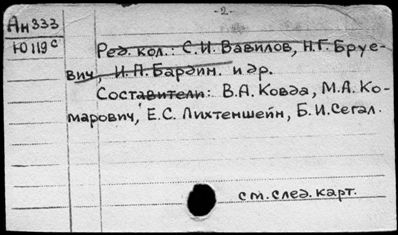 -2-
Ан333
Ю119с
Ред. кол.: С.И. Вавилов, Н.Г. Бруе-
вич, И.П. Бардин. и др.
Составители: В.А. Ковда, М.А. Ко-
марович, Е.С. Лихтенштейн, Б.И. Сегал.
см. след. карт.